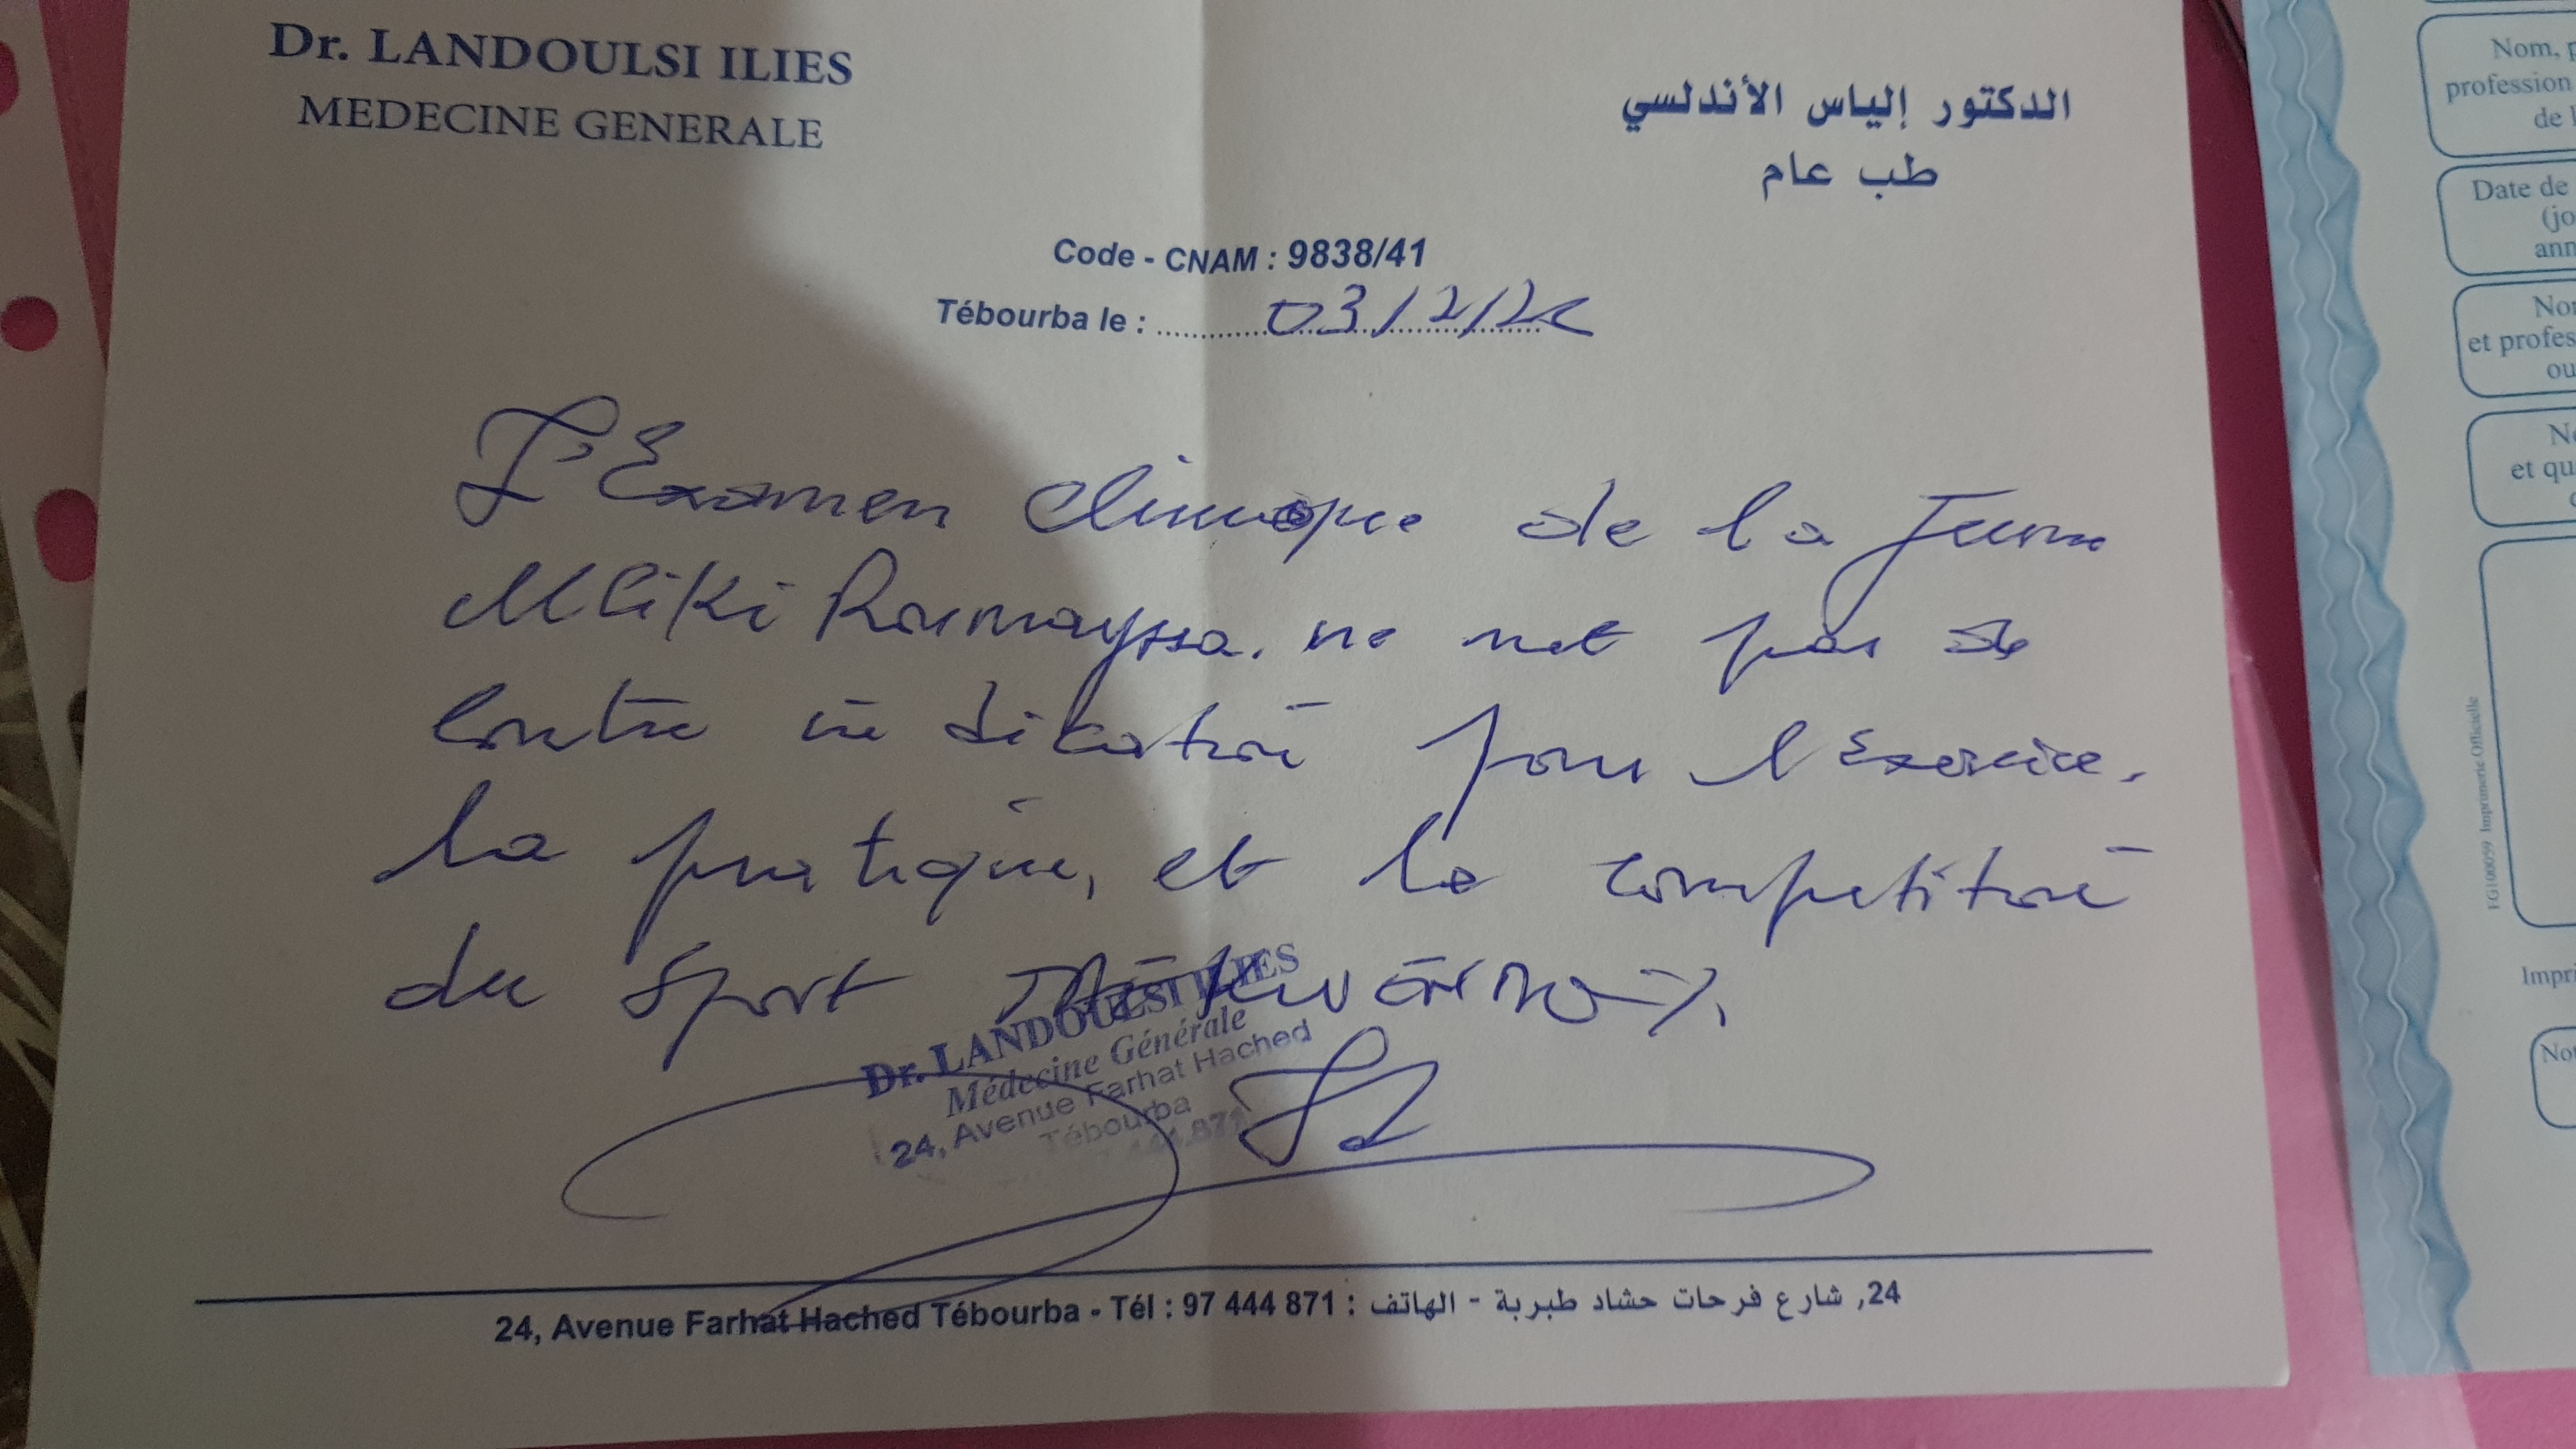 Dr. LANDOULSI ILIES
MEDECINE GENERALE
الدكتور إلياس الأندلسي
طب عام
Code - CNAM : 9838/41
Tébourba le : 03/2/2
L'Examen clinique de la Jeune
Mliki Roumayssa. ne met pas de
contre indication pour l'Exercice,
la pratique, et la competition
du Sport
Dr. LANDOULSI ILIES
Médecine Générale
24, Avenue Farhat Hached
Tébourba
24, Avenue Farhat Hached Tébourba - Tél : 97 444 871 : الهاتف - 24, شارع فرحات حشاد طبربة
Nom, p
profession
de l
Date de
(jo
ann
Nom
et profes
ou
No
et qu
FG100059 Imprimerie Officielle
Impri
Nor